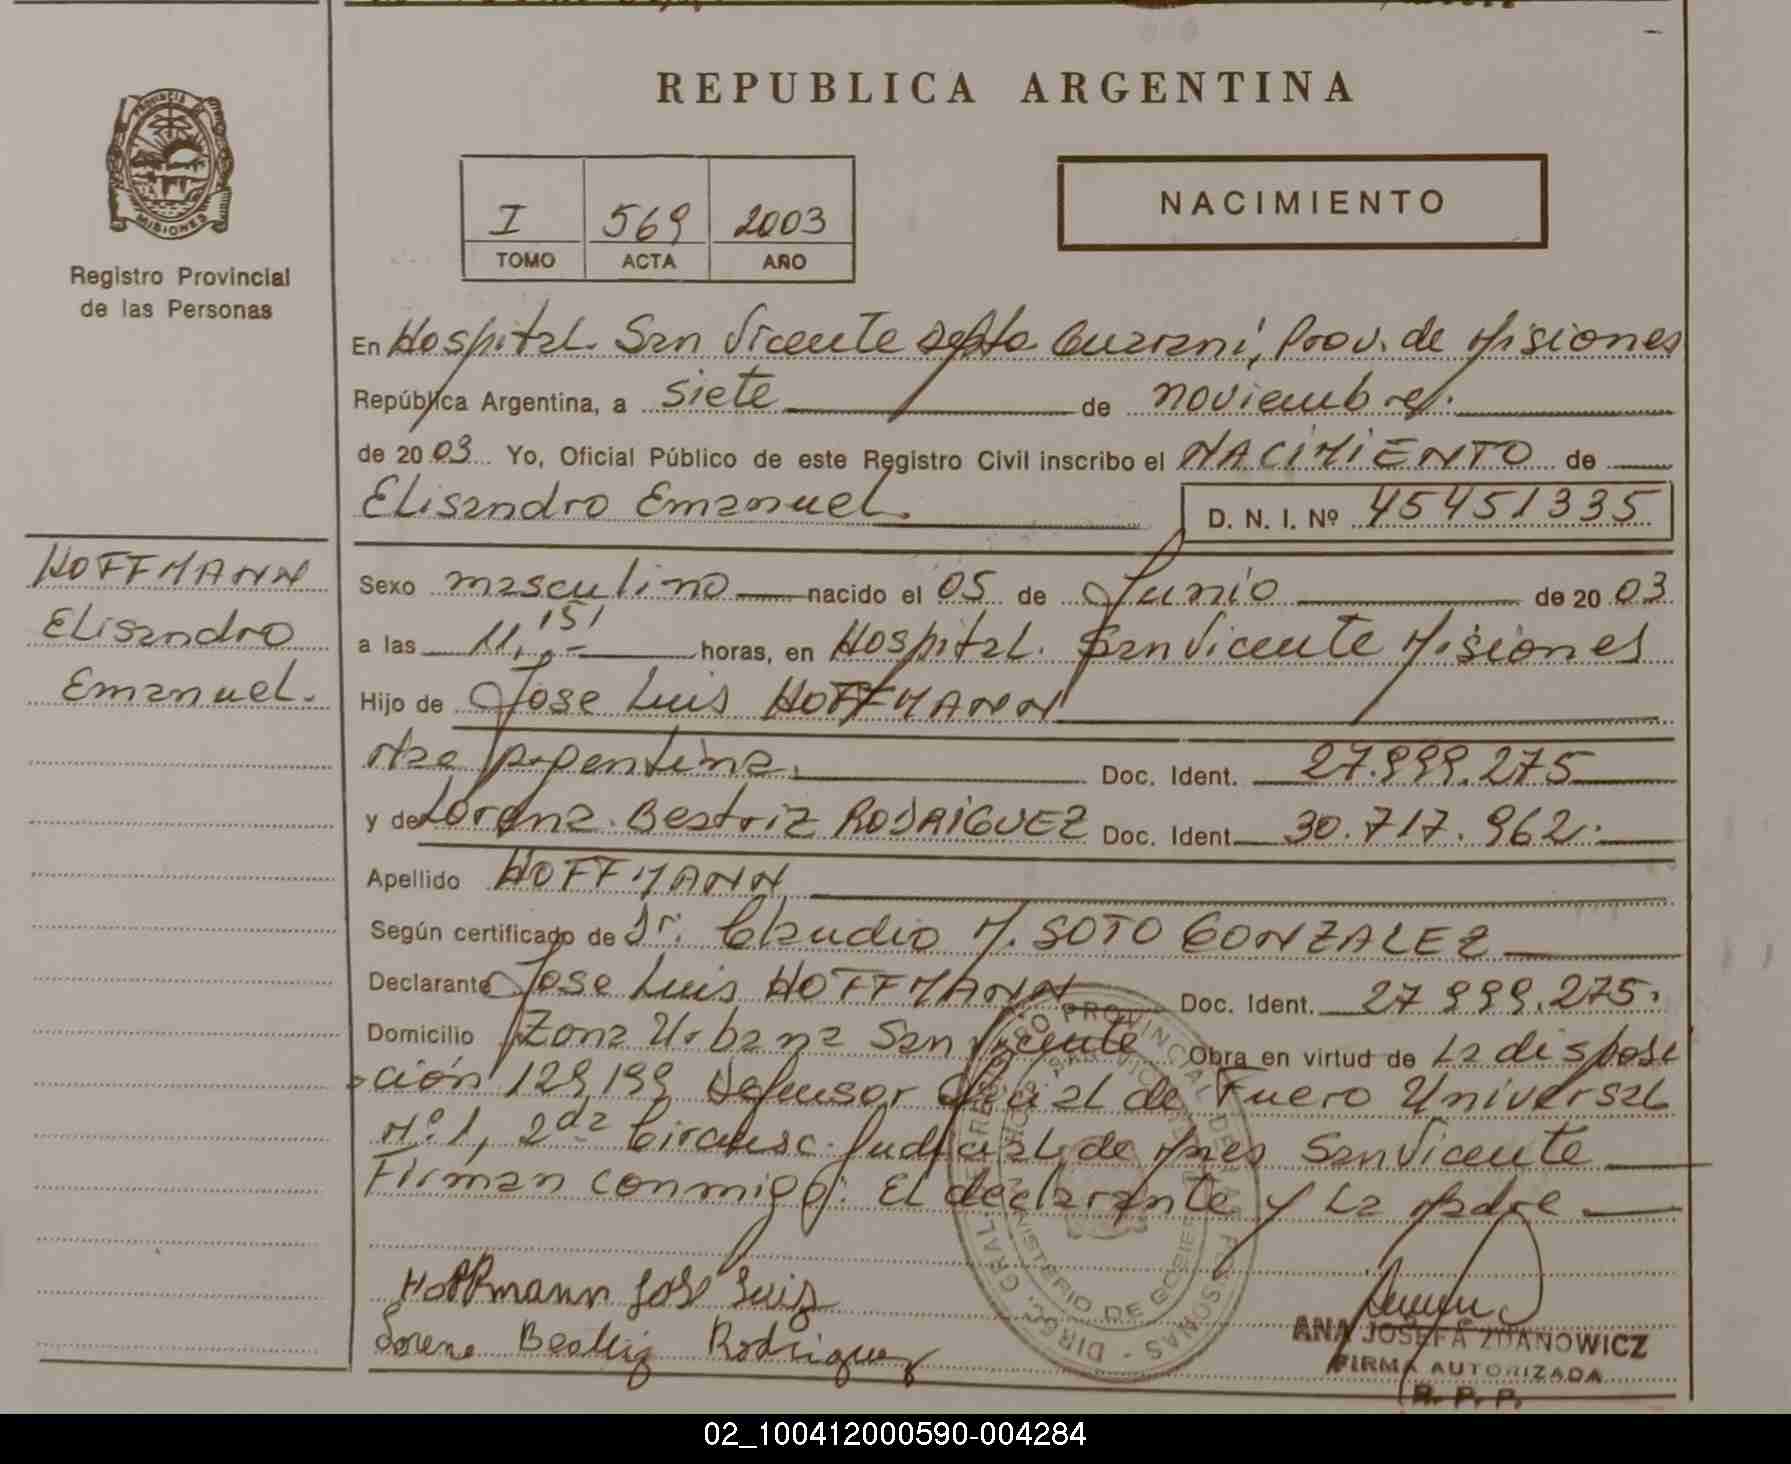 REPUBLICA ARGENTINA
PROVINCIA DE
MISIONES
Registro Provincial
de las Personas
I 569 2003
TOMO ACTA AÑO
NACIMIENTO
En Hospital. San Vicente Depto Guarani, Prov. de Misiones
República Argentina, a siete de noviembre.
de 2003 Yo, Oficial Público de este Registro Civil inscribo el NACIMIENTO de
Elisandro Emanuel. D. N. I. Nº 45451335
HOFFMANN
Elisandro
Emanuel.
Sexo masculino nacido el 05 de Junio de 2003
a las 11,15 horas, en Hospital. San Vicente Misiones
Hijo de Jose Luis HOFFMANN
Nac Argentina. Doc. Ident. 27.999.275
y de Lorena Beatriz RODRIGUEZ Doc. Ident. 30.717.962.
Apellido HOFFMANN
Según certificado de Dr. Claudio M. SOTO GONZALEZ
Declarante Jose Luis HOFFMANN Doc. Ident. 27 999.275.
Domicilio Zona Urbana San Vicente Obra en virtud de La disposi
ción 129/99 Defensor Oficial de Fuero Universal
Nº 1, 2da Circunsc. Judicial de Mnes San Vicente
Firman conmigo: El declarante y La Madre
Hoffmann José Luis
Lorena Beatriz Rodriguez
ANA JOSEFA ZDANOWICZ
FIRMA AUTORIZADA
R. P. P.
02_100412000590-004284